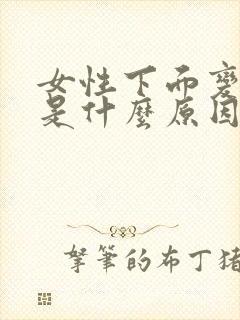 女性下而變
是什麼原因
拏筆的布丁猪